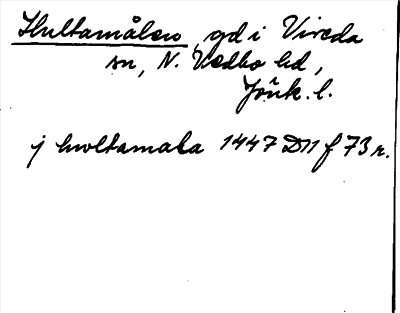 Hultamålen gd i Vireda
sn, N. Vedbo hd,
Jönk. l.
j hwltamala 1447 D11 f 73 r.